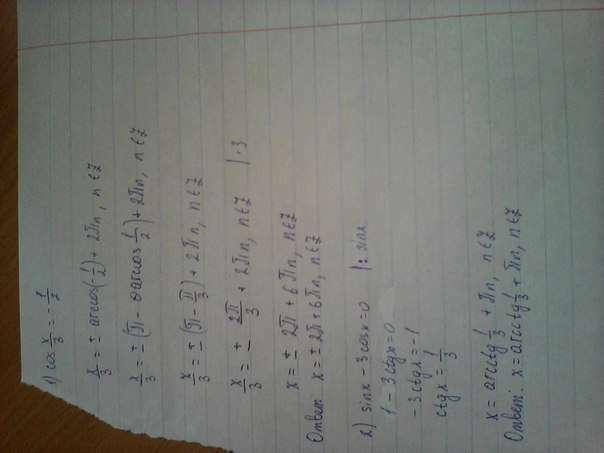 1) cos x/3 = -1/2
x/3 = ± arccos(-1/2) + 2πn, n∈Z
x/3 = ±(π - arccos 1/2) + 2πn, n∈Z
x/3 = ±(π - π/3) + 2πn, n∈Z
x/3 = ± 2π/3 + 2πn, n∈Z |·3
x = ± 2π + 6πn, n∈Z
Ответ: x = ± 2π + 6πn, n∈Z
2) sinx - 3cosx = 0 |: sinx
1 - 3ctgx = 0
-3ctgx = -1
ctgx = 1/3
x = arcctg 1/3 + πn, n∈Z
Ответ: x = arcctg 1/3 + πn, n∈Z